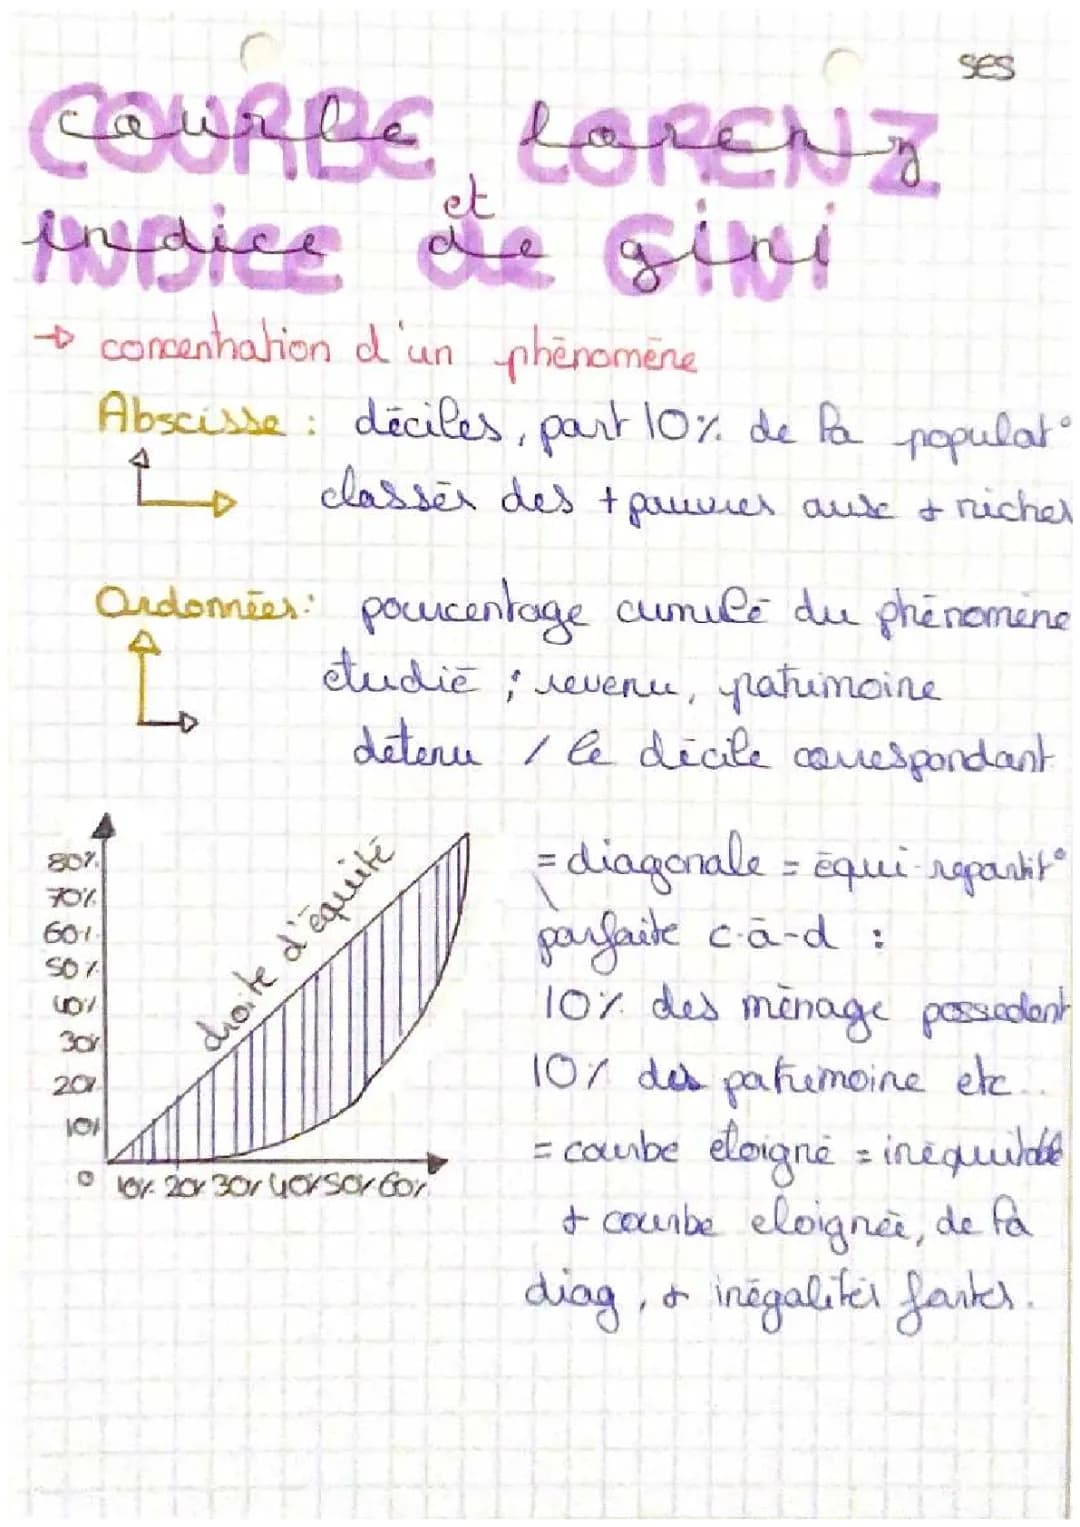 SES
COURBE LORENZ
courbe lorenz
et
INDICE de GINI
indice de gini
→ concentration d'un phénomène
Abscisse : déciles, part 10% de la populat°
classés des + pauvres aux + riches
Ordonnées : pourcentage cumulé du phénomène
étudié ; revenu, patrimoine
détenu / le décile correspondant
80%
70%
60%
50%
40%
30%
20%
10%
0 10% 20% 30% 40% 50% 60%
droite d'équité
= diagonale = équi-repartit°
parfaite c-à-d :
10% des ménage possedent
10% des patrimoine etc...
= courbe eloigné = inéquitable
+ courbe eloignée, de la
diag, + inégalités fortes.